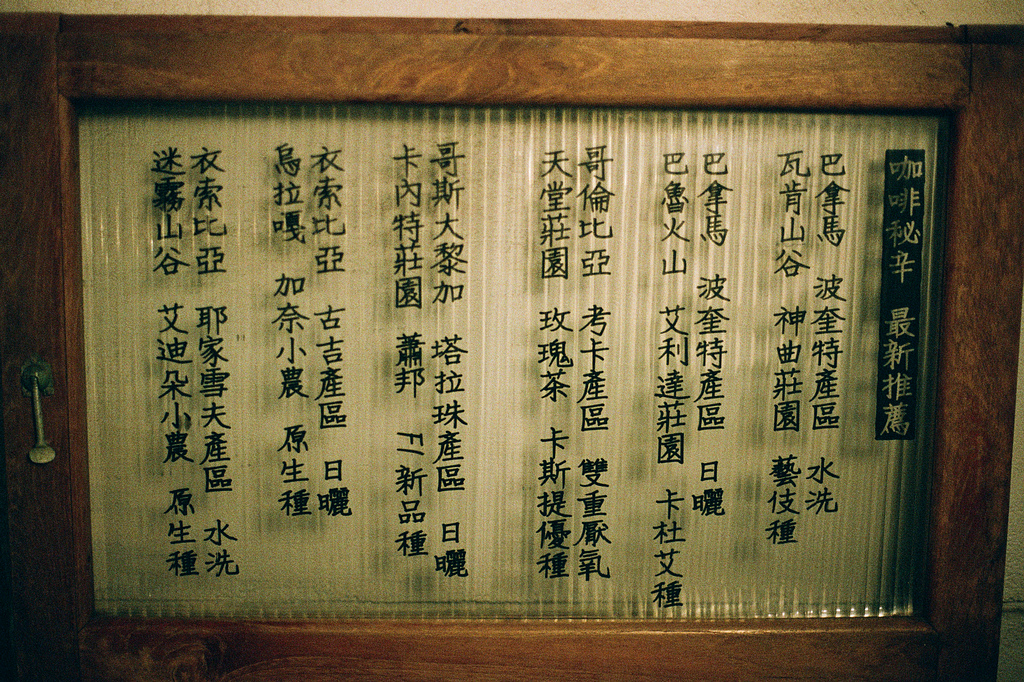 咖啡秘辛 最新推薦
巴拿馬 波奎特產區 水洗
瓦肯山谷 神曲莊園 藝伎種
巴拿馬 波奎特產區 日曬
巴魯火山 艾利達莊園 卡杜艾種
哥倫比亞 考卡產區 雙重厭氧
天堂莊園 玫瑰茶 卡斯提優種
哥斯大黎加 塔拉珠產區 日曬
卡內特莊園 蕭邦 F1新品種
衣索比亞 古吉產區 日曬
烏拉嘎 加奈小農 原生種
衣索比亞 耶家雪夫產區 水洗
迷霧山谷 艾迪朵小農 原生種